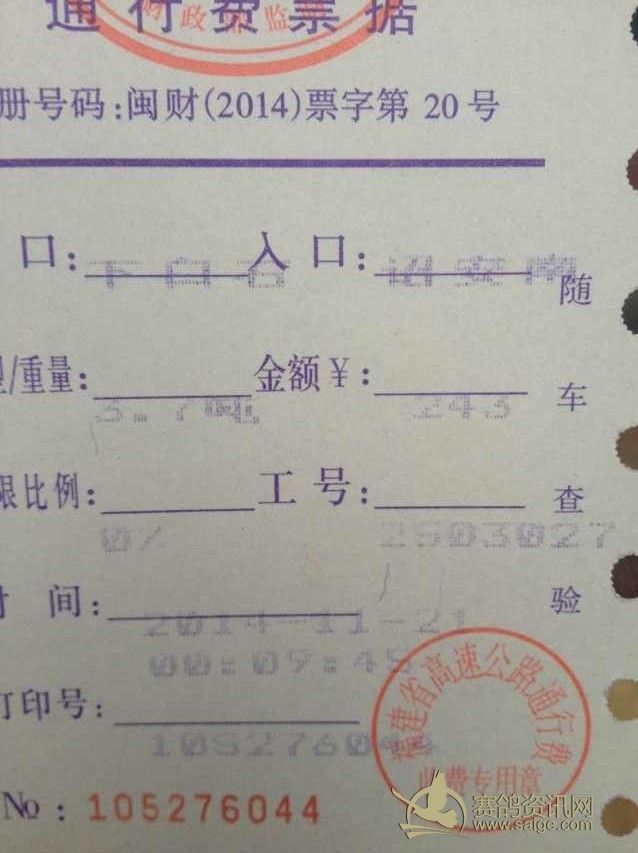 通行费票据
财政 监
册号码:闽财(2014)票字第 20 号
口: 下白石 入 口: 诏安南 随
型/重量: 3.7吨 金额￥: 243 车
限比例: 0% 工 号: 2503027 查
时 间: 2014-11-21 验
00:09:45
打印号: 105276044
福建省高速公路通行费
收费专用章
№ : 105276044
赛鸽资讯网
www.saige.com